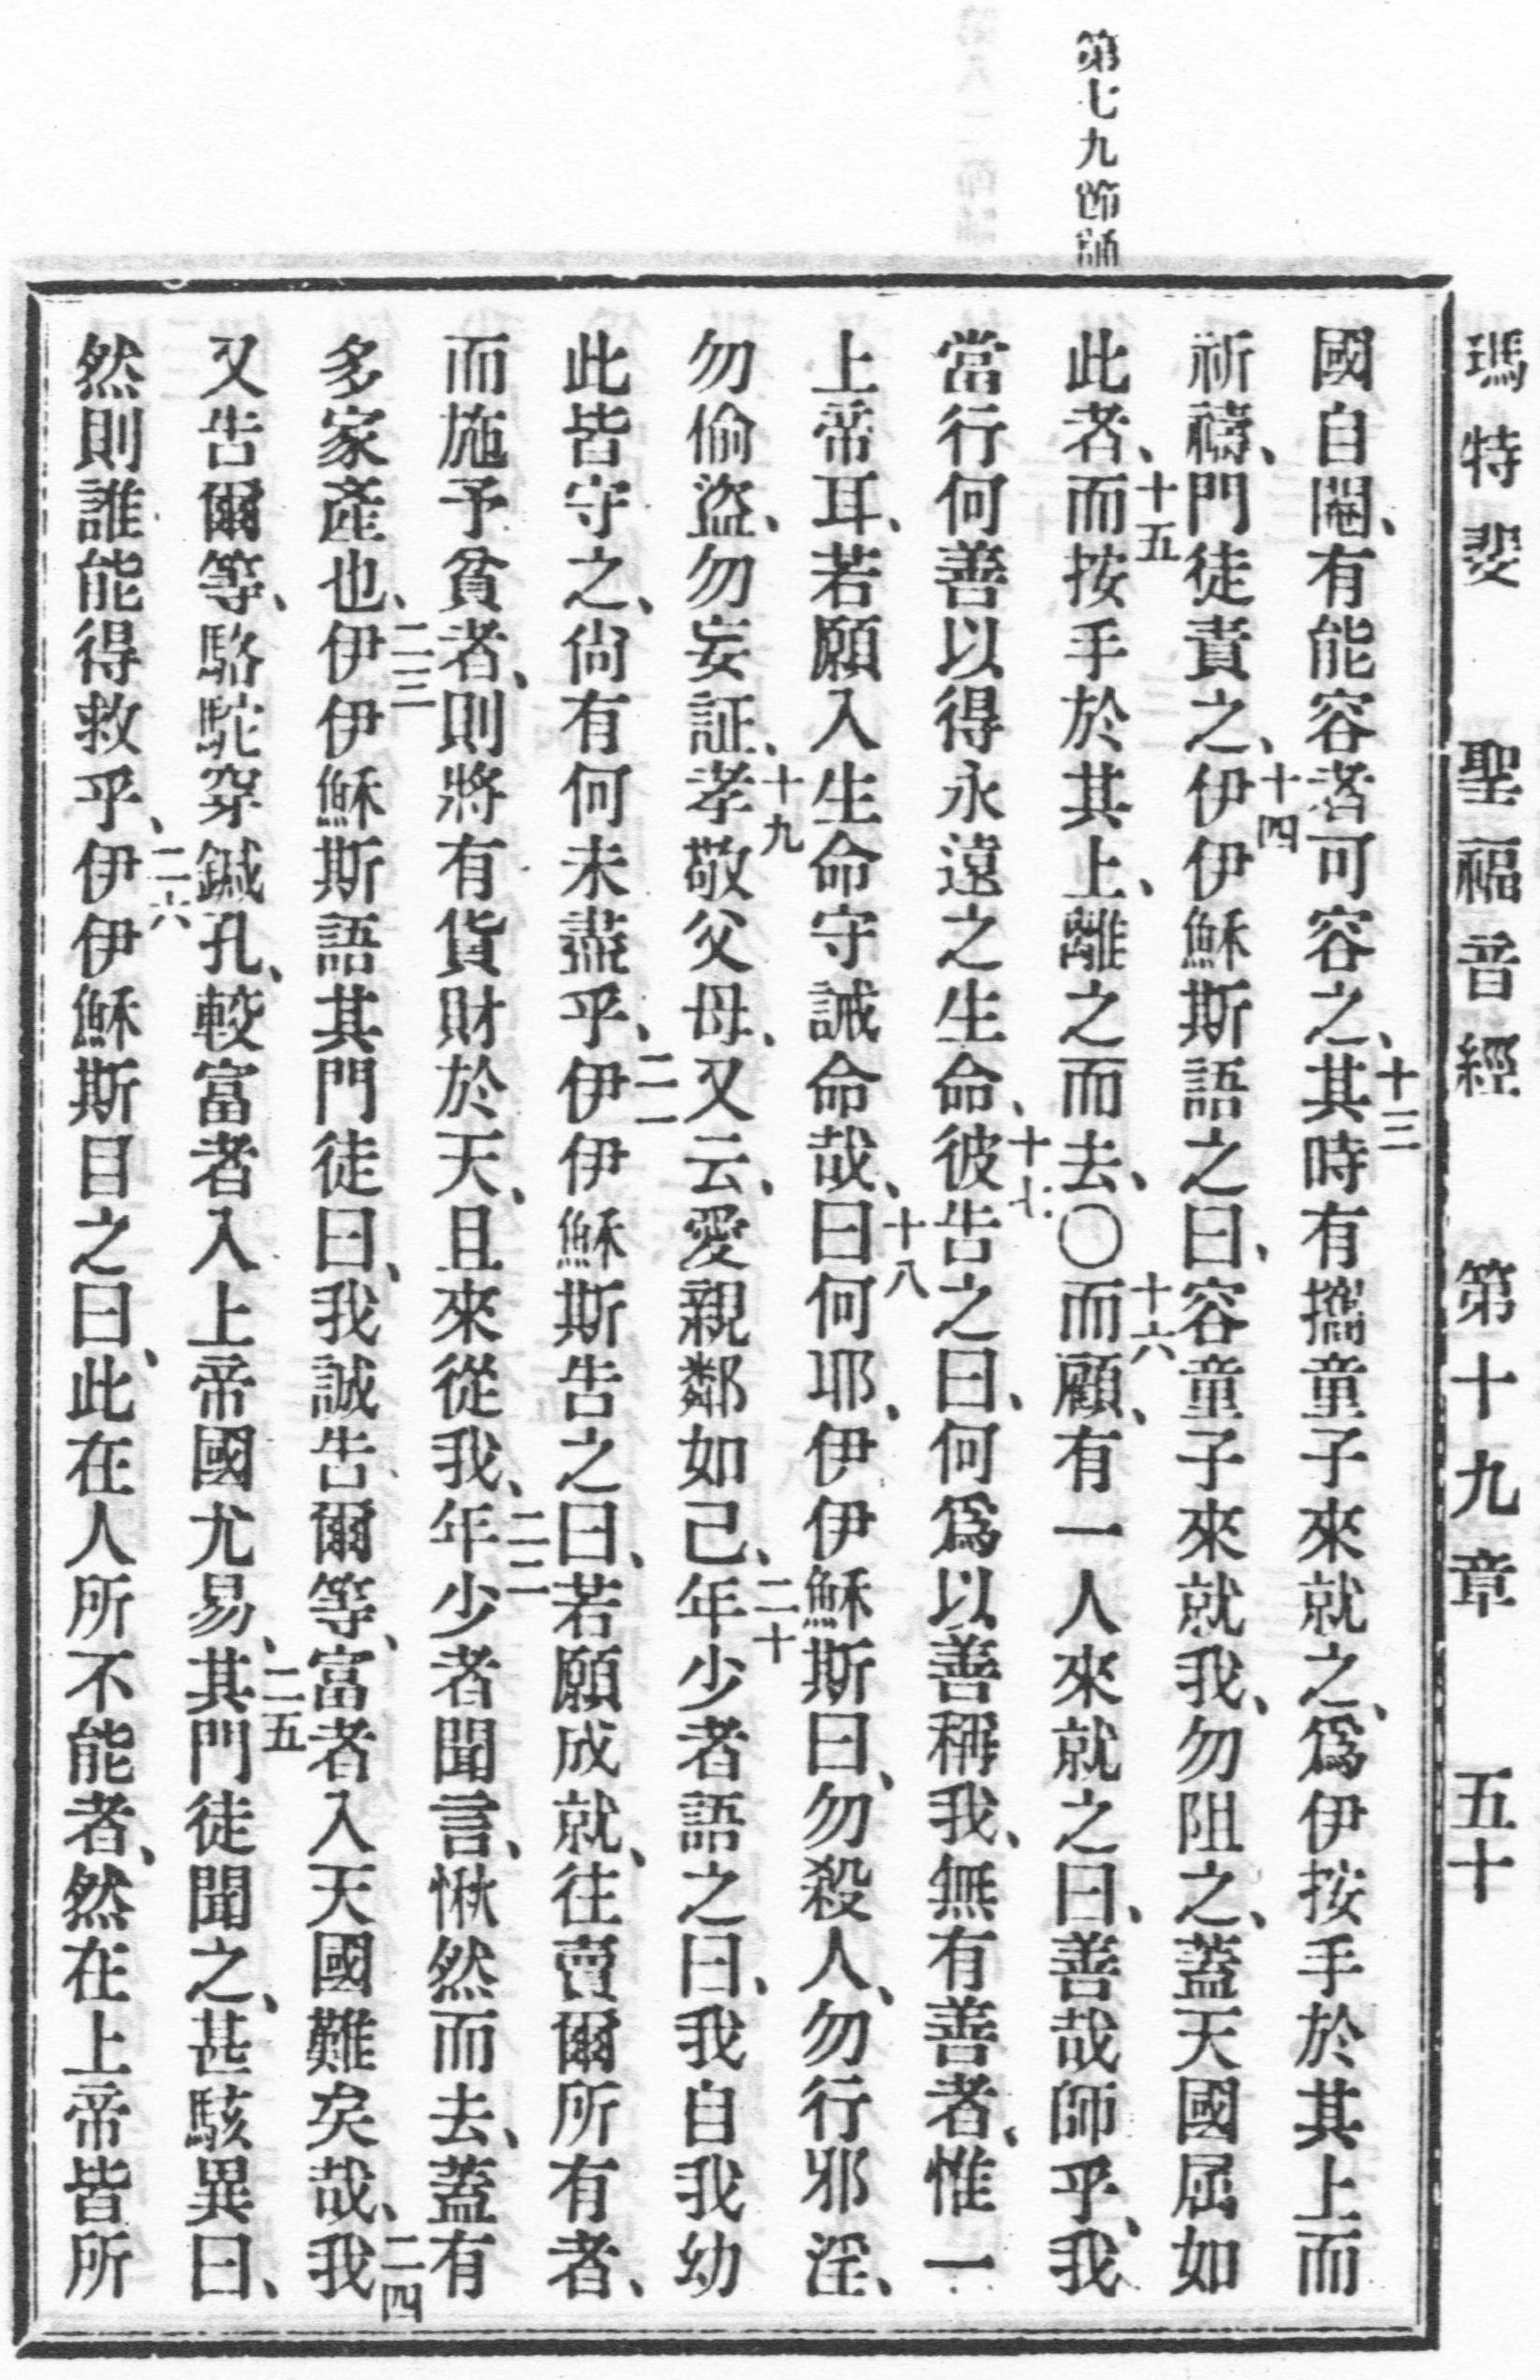 瑪特斐 聖福音經 第十九章 五十
第七九節誦
國自閹、有能容者可容之、十三其時有攜童子來就之、爲伊按手於其上而
祈禱、門徒責之、十四伊伊穌斯語之曰、容童子來就我、勿阻之、蓋天國屈如
此者、十五而按手於其上、離之而去、〇十六而顧、有一人來就之曰、善哉師乎、我
當行何善以得永遠之生命、十七彼告之曰、何爲以善稱我、無有善者、惟一
上帝耳、若願入生命守誡命哉、十八曰何耶、伊伊穌斯曰、勿殺人、勿行邪淫、
勿偷盜、勿妄証、十九孝敬父母、又云、愛親鄰如己、二十年少者語之曰、我自我幼
此皆守之、尙有何未盡乎、二一伊伊穌斯告之曰、若願成就、往賣爾所有者、
而施予貧者、則將有貨財於天、且來從我、二二年少者聞言、愀然而去、蓋有
多家產也、二三伊伊穌斯語其門徒曰、我誠告爾等、富者入天國難矣哉、二四我
又告爾等、駱駝穿鍼孔、較富者入上帝國尤易、二五其門徒聞之、甚駭異曰、
然則誰能得救乎、二六伊伊穌斯目之曰、此在人所不能者、然在上帝皆所